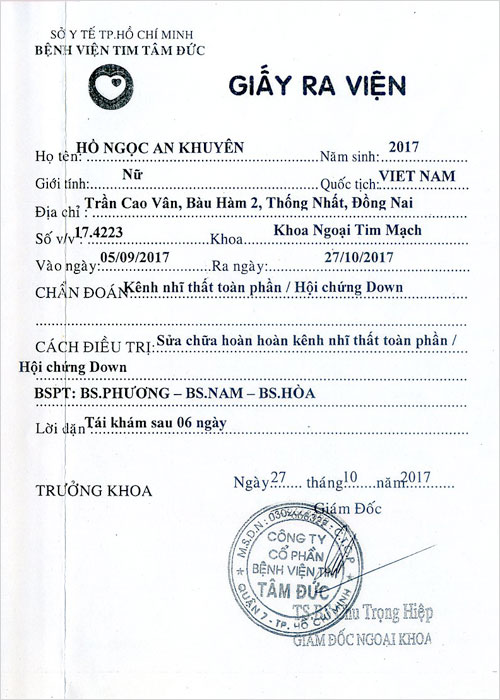 SỞ Y TẾ TP.HỒ CHÍ MINH
BỆNH VIỆN TIM TÂM ĐỨC
GIẤY RA VIỆN
Họ tên: HỒ NGỌC AN KHUYÊN Năm sinh: 2017
Giới tính: Nữ Quốc tịch: VIET NAM
Địa chỉ : Trần Cao Vân, Bàu Hàm 2, Thống Nhất, Đồng Nai
Số v/v: 17.4223 Khoa Khoa Ngoại Tim Mạch
Vào ngày: 05/09/2017 Ra ngày: 27/10/2017
CHẨN ĐOÁN: Kênh nhĩ thất toàn phần / Hội chứng Down
CÁCH ĐIỀU TRỊ: Sửa chữa hoàn hoàn kênh nhĩ thất toàn phần /
Hội chứng Down
BSPT: BS.PHƯƠNG – BS.NAM – BS.HÒA
Lời dặn Tái khám sau 06 ngày
Ngày 27 tháng 10 năm 2017
TRƯỞNG KHOA
Giám Đốc
M.S.D.N: C.T.C.P
CÔNG TY
CỔ PHẦN
BỆNH VIỆN TIM
TÂM ĐỨC
QUẬN 7 - TP. HỒ CHÍ MINH
Trọng Hiệp
GIÁM ĐỐC NGOẠI KHOA